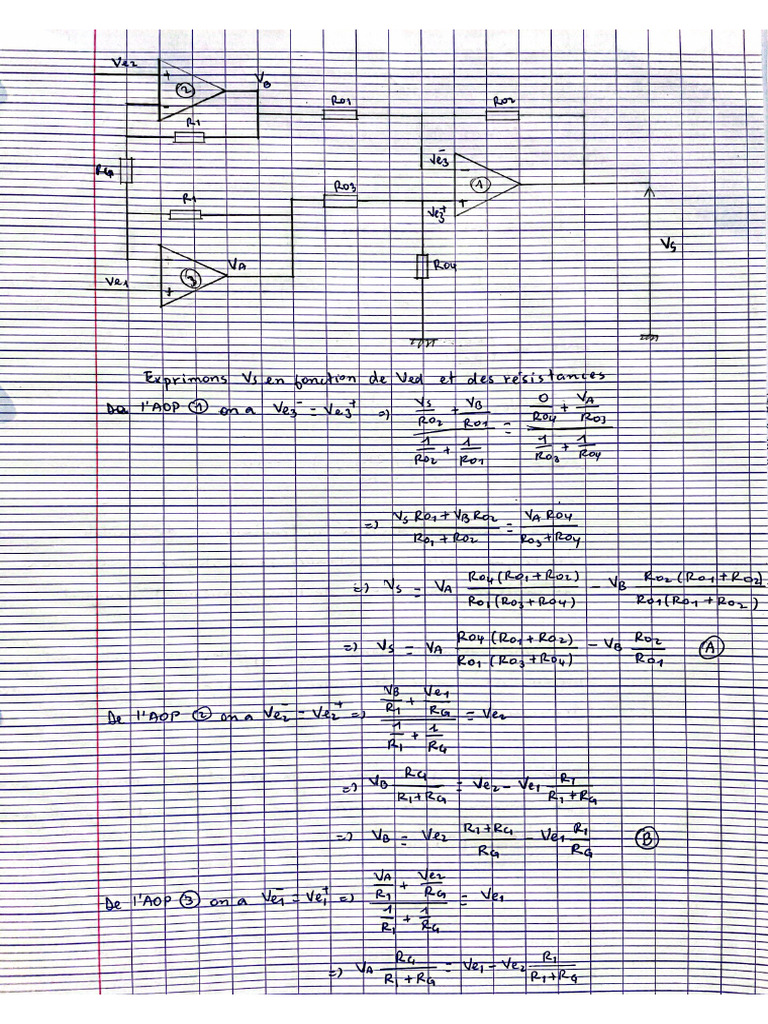 Ve2
+
2
VB
-
R1
R01
R02
RG
Ve3⁻
-
1
R1
R03
Ve3⁺
+
VS
-
VA
R04
3
Ve1
+
Exprimons Vs en fonction de Ved et des résistances
De l'AOP ① on a Ve3⁻ = Ve3⁺ => (Vs/R02 + VB/R01)/(1/R02 + 1/R01) = (0/R04 + VA/R03)/(1/R03 + 1/R04)
=> (Vs R01 + VB R02)/(R01 + R02) = (VA R04)/(R03 + R04)
=> Vs = VA R04(R01 + R02)/R01(R03 + R04) - VB R02(R01 + R02)/R01(R01 + R02)
=> Vs = VA R04(R01 + R02)/R01(R03 + R04) - VB R02/R01 Ⓐ
De l'AOP ② on a Ve2⁻ = Ve2⁺ => (VB/R1 + Ve1/RG)/(1/R1 + 1/RG) = Ve2
=> VB RG/(R1 + RG) = Ve2 - Ve1 R1/(R1 + RG)
=> VB = Ve2 (R1 + RG)/RG - Ve1 R1/RG Ⓑ
De l'AOP ③ on a Ve1⁻ = Ve1⁺ => (VA/R1 + Ve2/RG)/(1/R1 + 1/RG) = Ve1
=> VA RG/(R1 + RG) = Ve1 - Ve2 R1/(R1 + RG)